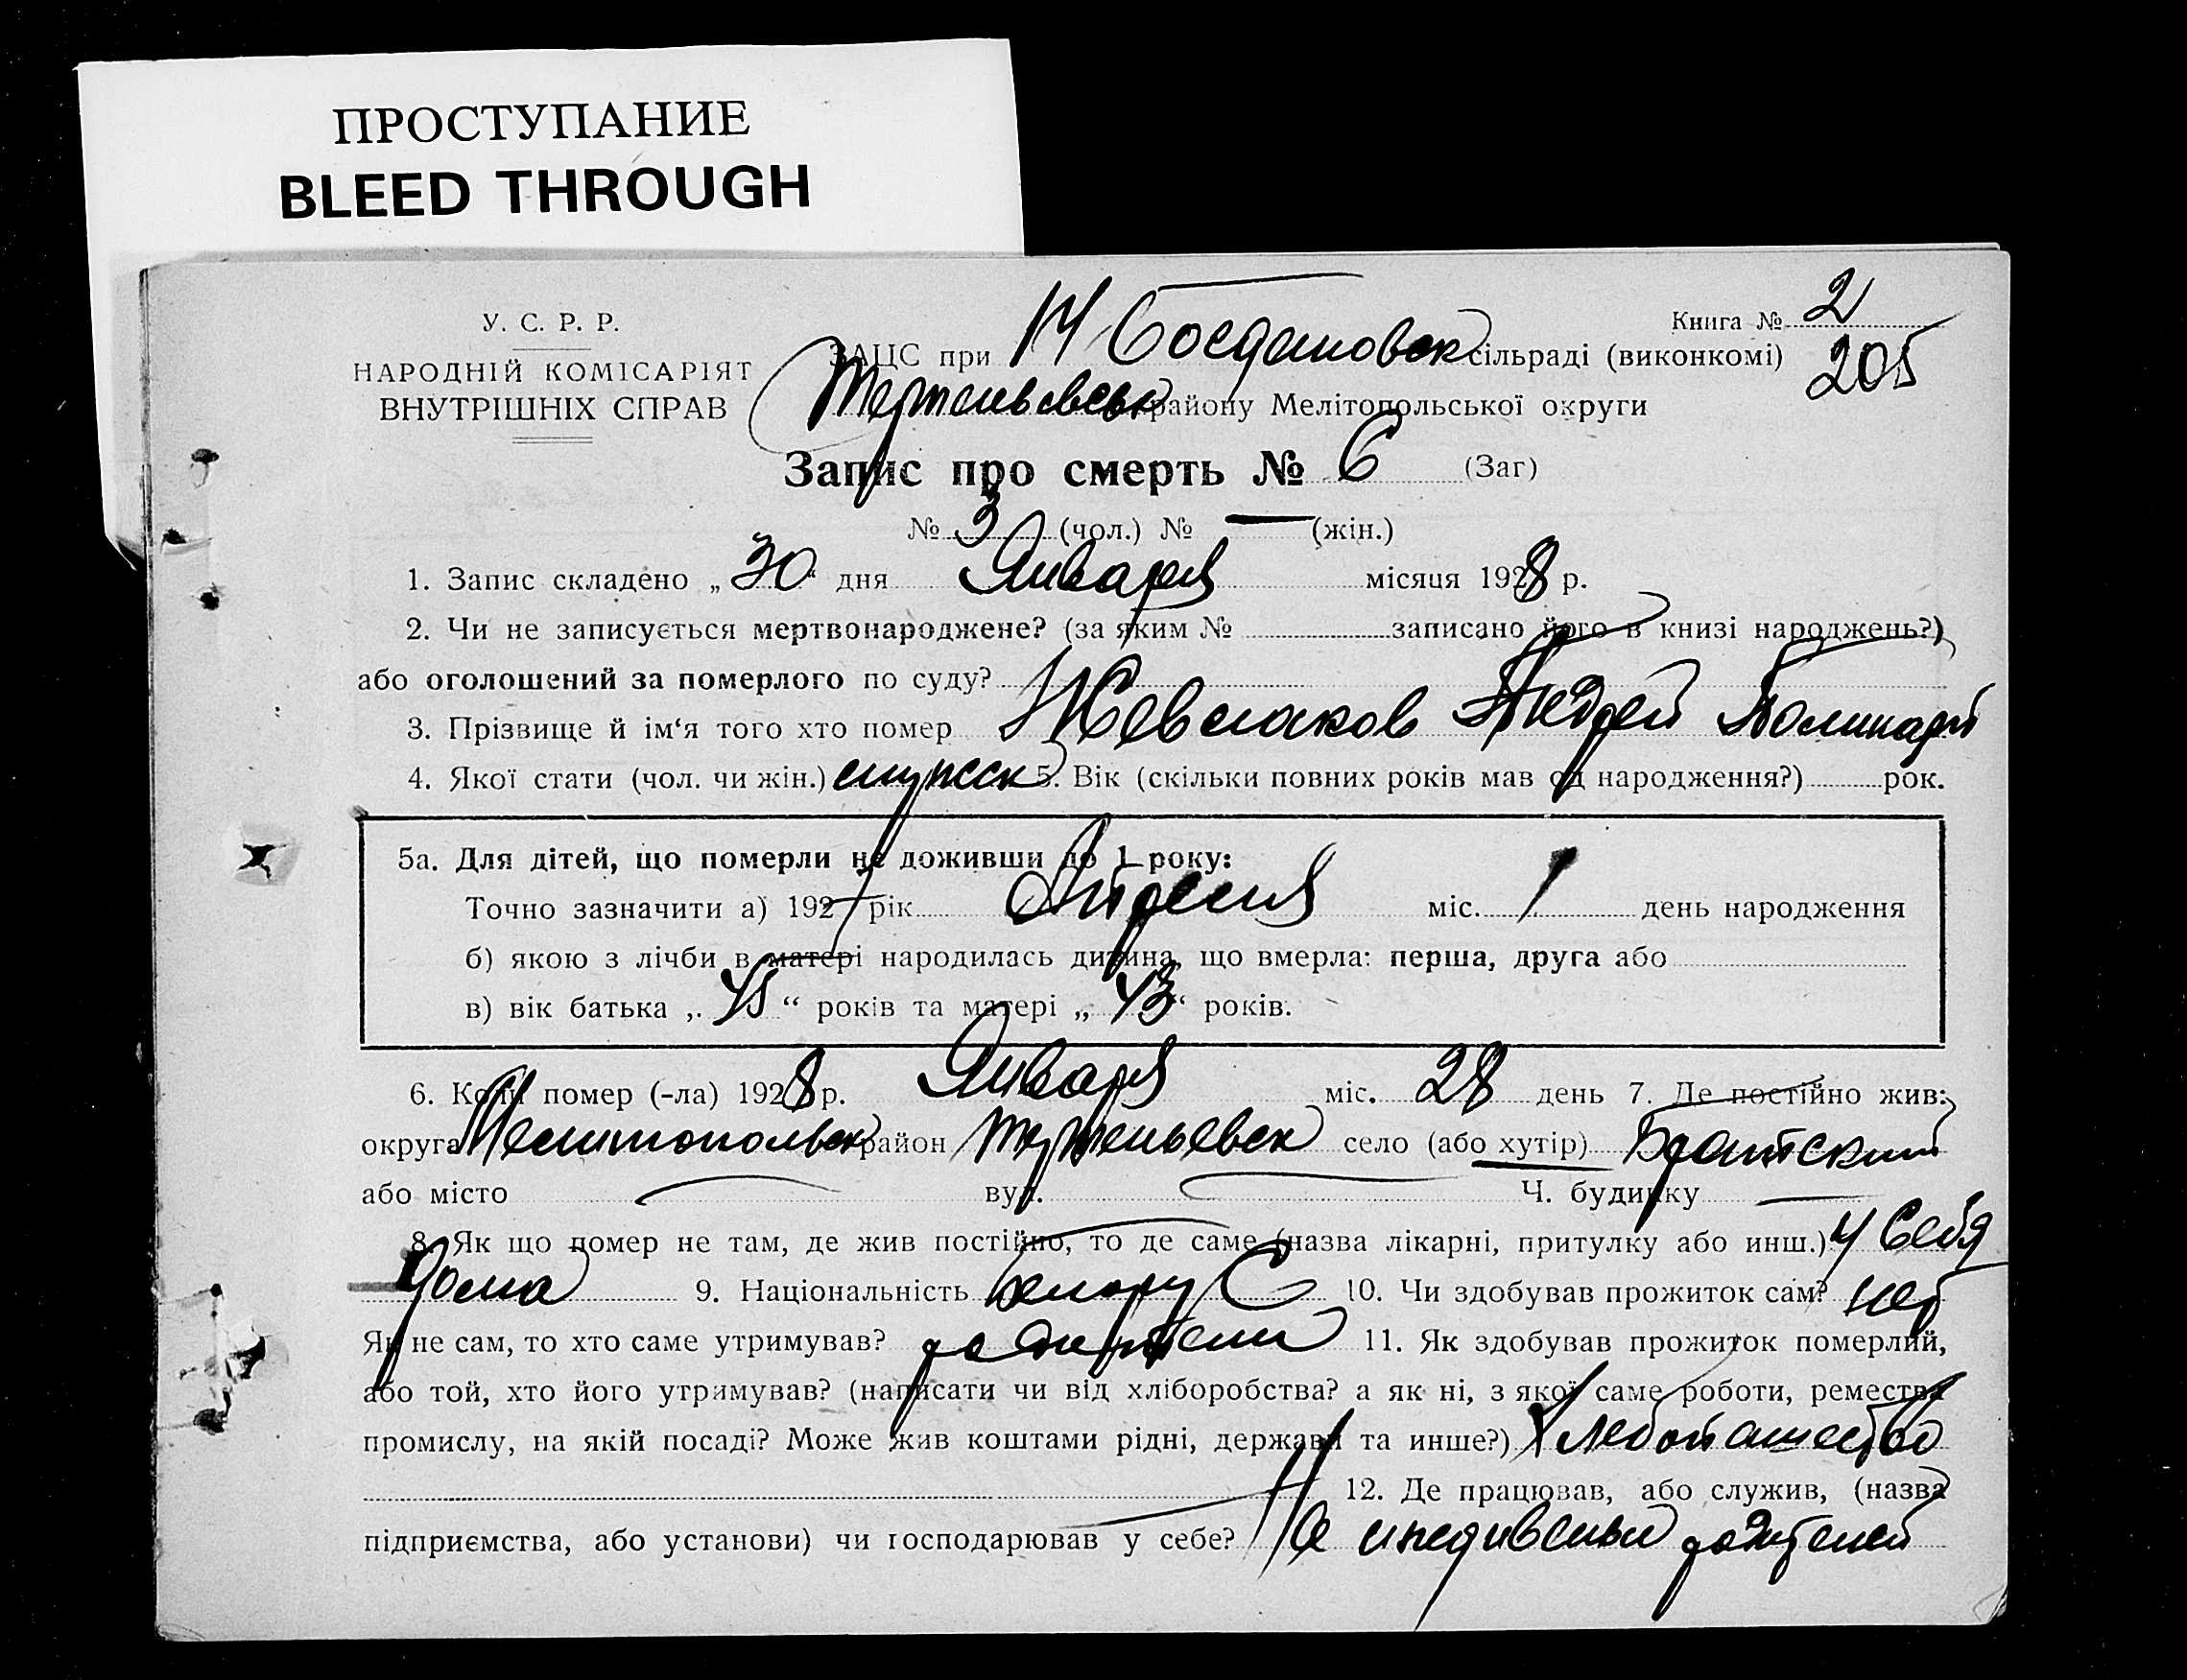 ПРОСТУПАНИЕ
BLEED THROUGH
У. С. Р. Р.
НАРОДНІЙ КОМІСАРІЯТ
ВНУТРІШНІХ СПРАВ
Книга № 2
205
ЗАЦС при Н Богдановск сільраді (виконкомі)
району Мелітопольської округи
Запис про смерть № 6 (Заг)
№ 3 (чол.) № — (жін.)
1. Запис складено „30“ дня Января місяця 1928 р.
2. Чи не записується мертвонароджене? (за яким № записано його в книзі народжень?)
або оголошений за померлого по суду?
3. Прізвище й ім‘я того хто помер Андрей
4. Якої стати (чол. чи жін.) мужск 5. Вік (скільки повних років мав од народження?) рок.
5а. Для дітей, що померли не доживши до 1 року:
Точно зазначити а) 1927 рік Апреля міс. 1 день народження
б) якою з лічби в матері народилась дитина, що вмерла: перша, друга або
в) вік батька „45“ років та матері „43“ років.
6. Коли помер (-ла) 1928 р. Января міс. 28 день 7. Де постійно жив:
округа Мелитопольск район село (або хутір) Братский
або місто — вул. — Ч. будинку —
8. Як що помер не там, де жив постійно, то де саме (назва лікарні, притулку або инш.) у себя
дома 9. Національність белорус 10. Чи здобував прожиток сам? нет
Як не сам, то хто саме утримував? родители 11. Як здобував прожиток померлий,
або той, хто його утримував? (написати чи від хліборобства? а як ні, з якої саме роботи, ремества
промислу, на якій посаді? Може жив коштами рідні, держави та инше?) Хлебопашество
12. Де працював, або служив, (назва
підприємства, або установи) чи господарював у себе? На иждивеньи родителей